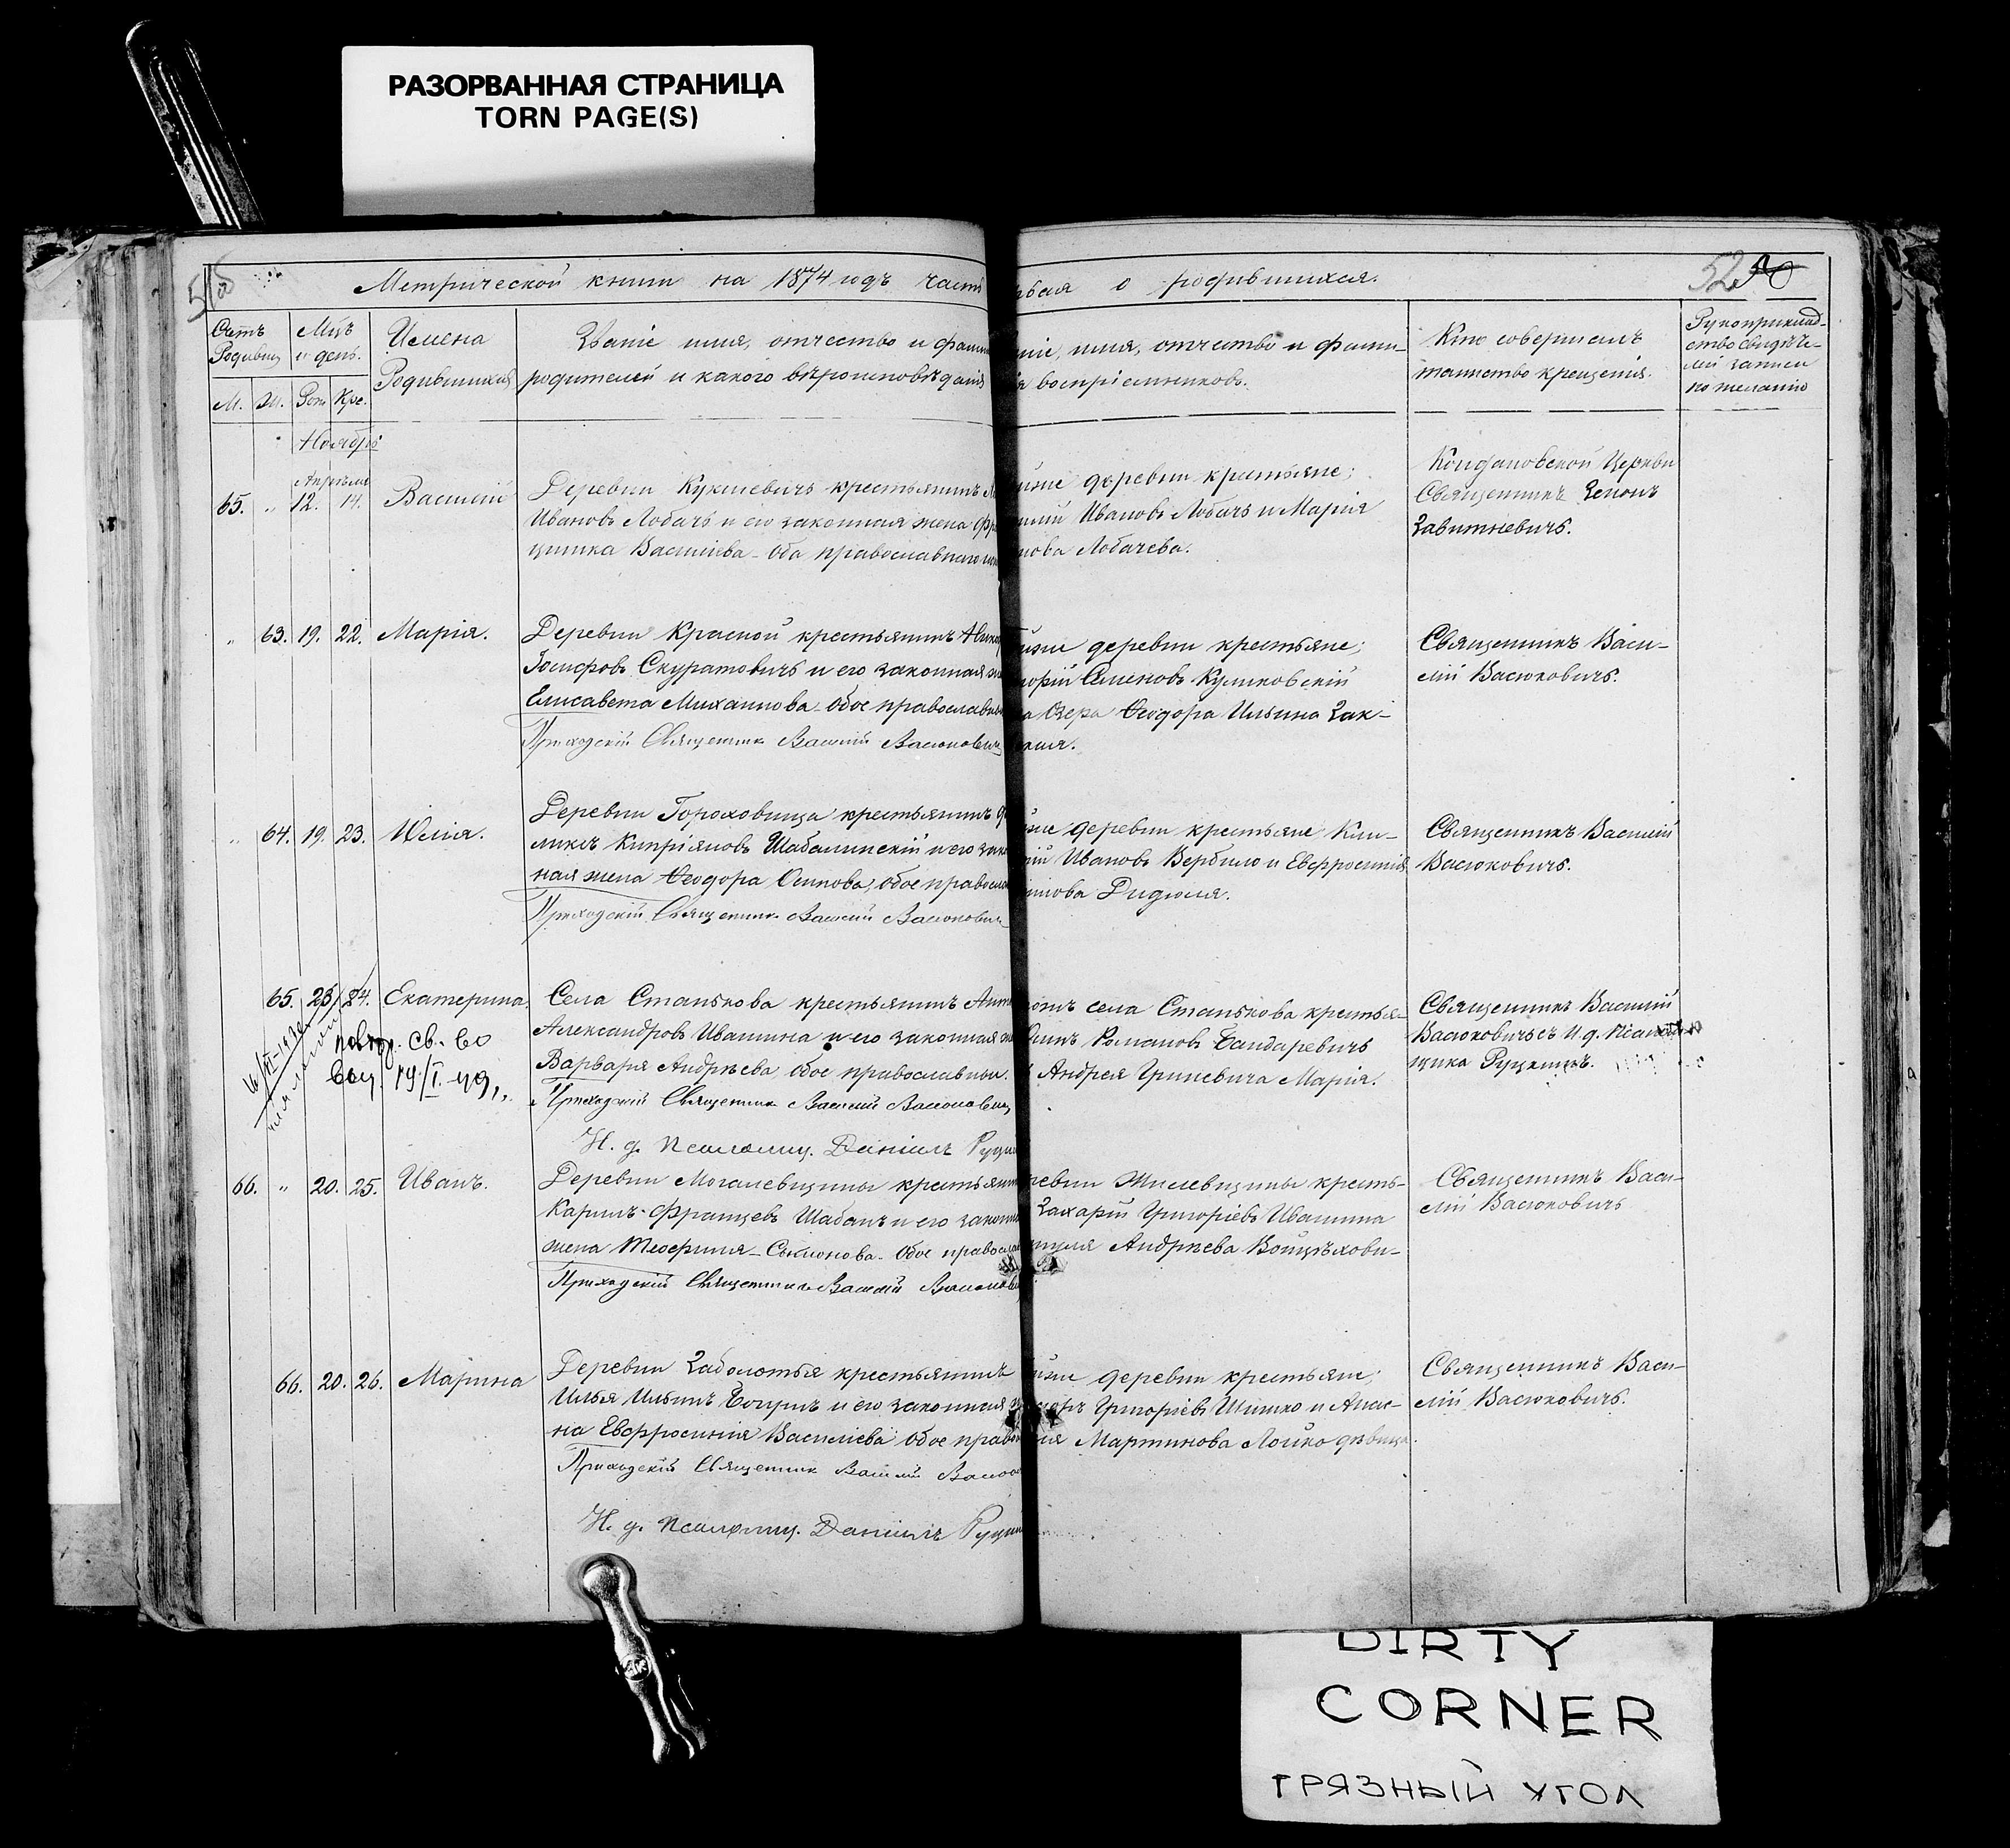 РАЗОРВАННАЯ СТРАНИЦА
TORN PAGE(S)
Метрической книги на 1874 годъ часть
рвая о родившихся.
52
Счетъ Родивш
М. Ж.
Мцъ и день.
Рож Кре.
Имена Родившихся
Званіе имя, отчество и фами
родителей и какого вѣроисповѣданія
ніе, имя, отчество и фами-
я воспріемниковъ.
Кто совершалъ
таинство крещенія.
Рукоприклад-
ство свидѣте-
лей записи
по желанію
Ноября
Апрѣля
65. „ 12. 14. Василій
Деревни Кукшевичъ крестьянинъ
Ивановъ Лобачъ и его законная жена Фр
цишка Васильева - оба православнаго
жне деревни крестьяне;
Ивановъ Лобачъ и Марія
нова Лобачева.
Койдановской Церкви
Священникъ Зенонъ
Завитневичъ.
„ 63. 19. 22. Марія.
Деревни Красной крестьянинъ
Іосифовъ Скуратовичъ и его законная
Елисавета Михаилова - обое православны
Приходскій Священникъ Василій Васюкович
деревни крестьяне;
горій Семеновъ Куликовскій
Озера Ѳеодора Ильина Зак-
Священникъ Васи-
лій Васюковичъ.
„ 64. 19. 23. Юлія.
Деревни Гороховица крестьянинъ
ликсъ Кипріяновъ Шабалинскій и его зако
ная жена Ѳеодора Осипова, обое правосла
Приходскій Священникъ Василій Васюкович
жне деревни крестьяне Кли-
Ивановъ Вербило и Евфросинія
Дидюля.
Священникъ Василій
Васюковичъ.
65. 23. 24. Екатерина.
повтор. св.-во
выд. 19/I-49,,
Села Станькова крестьянинъ Анто
Александровъ Ивашина и его законная
Варвара Андреева, обое православны.
Приходскій Священникъ Василій Васюкович
И. д. Псаломщ. Даніилъ Руцк
села Станькова крестья-
Романовъ Бандаревичъ
Андрея Гриневича Марія.
Священникъ Василій
Васюковичъ съ И. д. Псалом
щика Руцкимъ.
66. „ 20. 25. Иванъ.
Деревни Могалевщины крестьян
Карлъ-Францевъ Шабанъ и его законн
жена - обое правосла
Приходскій Священникъ Василій Васюкови
ревни Жилевщины кресть-
Захарій Григоріевъ Ивашина
Андреева Войцѣхови-
Священникъ Васи-
лій Васюковичъ
66. 20. 26. Марина
Деревни Заболотья крестьянинъ
Илья Ильинъ и его законная
на Евфросинія Василіева обое право
Приходскій Священникъ Василій Васюк
И. д. Псаломщ. Даніилъ Руцки
деревни крестьяне;
Григоріевъ Шишко и Анас-
Мартинова Лойко дѣвица.
Священникъ Васи-
лій Васюковичъ.
DIRTY
CORNER
ГРЯЗНЫЙ УГОЛ